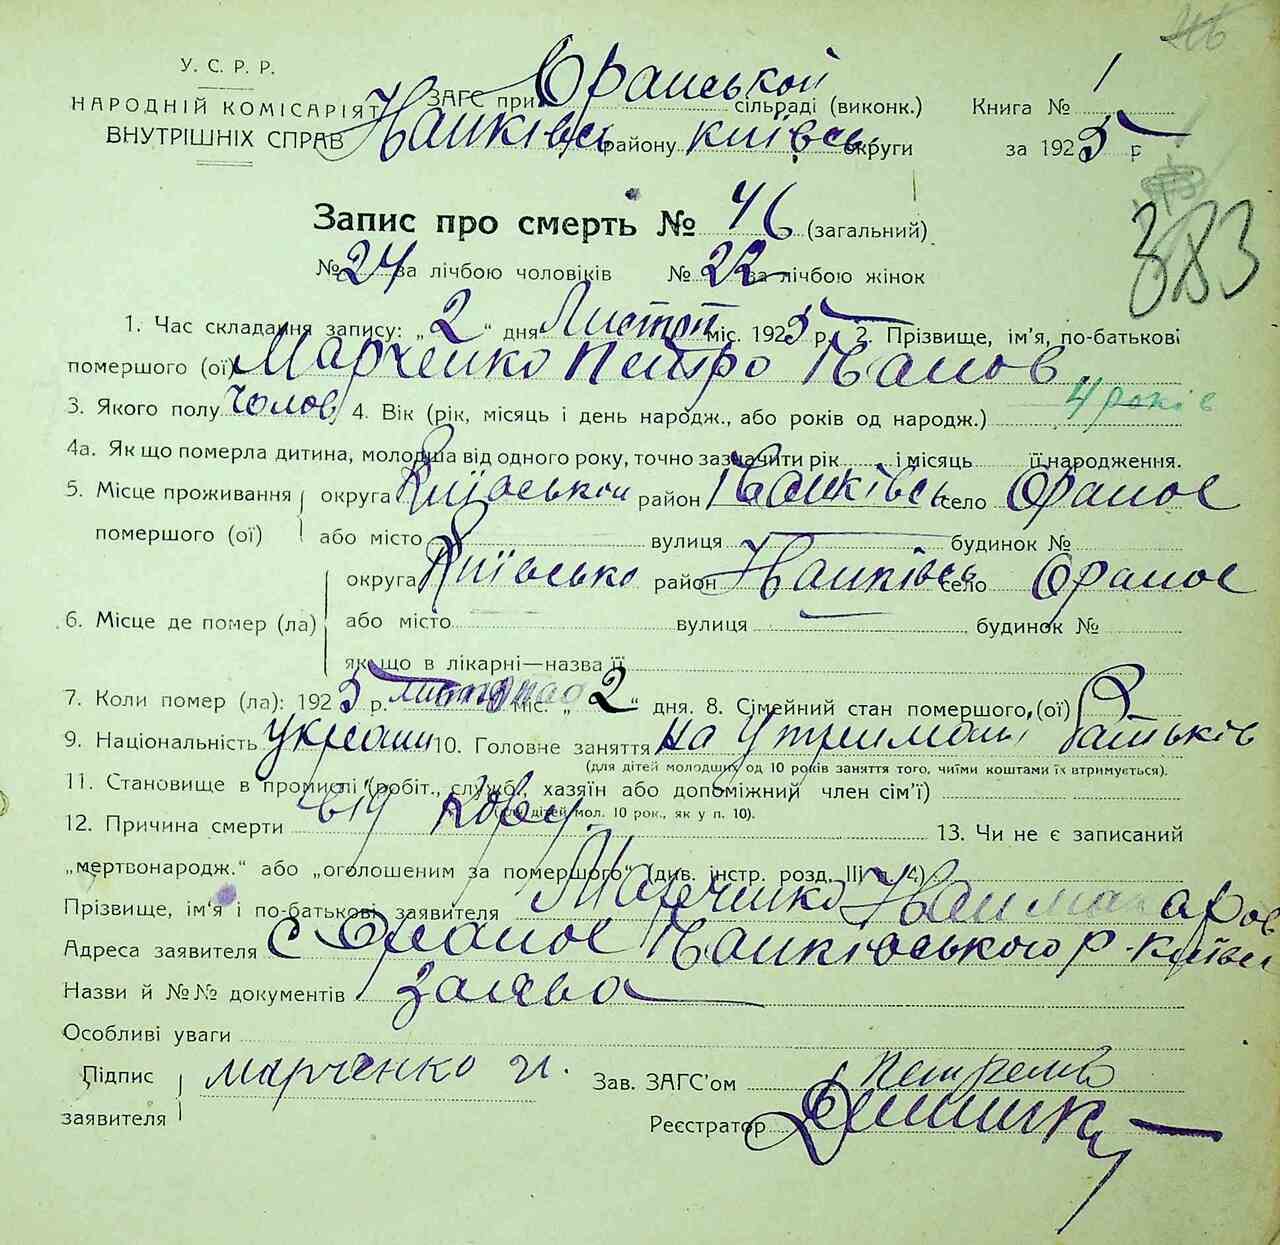 У. С. Р. Р.
НАРОДНІЙ КОМІСАРІЯТ
ВНУТРІШНІХ СПРАВ
ЗАГС при Оранській сільраді (виконк.)
району Київсь округи
Книга № 1
за 1925 р
Запис про смерть № 46 (загальний)
383
№ 24 за лічбою чоловіків № 22 за лічбою жінок
1. Час складання запису: „2“ дня Листоп міс. 1925 р. 2. Прізвище, ім'я, по-батькові
помершого (ої) Марченко Петро Іванов
3. Якого полу Чолов 4. Вік (рік, місяць і день народж., або років од народж.) 4 років
4а. Як що померла дитина, молодша від одного року, точно зазначити рік і місяць її народження.
5. Місце проживання округа Київської район Іванківсь село Оране
помершого (ої) або місто вулиця будинок №
округа Київсько район Іванківсь село Оране
6. Місце де помер (ла) або місто вулиця будинок №
як що в лікарні—назва її
7. Коли помер (ла): 1925 р. листопад міс. „2“ дня. 8. Сімейний стан помершого, (ої)
9. Національність україн 10. Головне заняття на утримані Батьків
(для дітей молодших од 10 років заняття того, чиїми коштами їх втримується).
11. Становище в промислі (робіт., службі, хазяїн або допоміжний член сім'ї)
(для дітей мол. 10 рок., як у п. 10).
12. Причина смерти від кору 13. Чи не є записаний
„мертвонародж.“ або „оголошеним за помершого“ (див. інстр. розд. III а. 4)
Прізвище, ім'я і по-батькові заявителя Марченко Іван Макаров
Адреса заявителя с Оране Іванківського р. Київсь
Назви й №№ документів заява
Особливі уваги
Підпис заявителя марченко Зав. ЗАГС'ом
Реєстратор